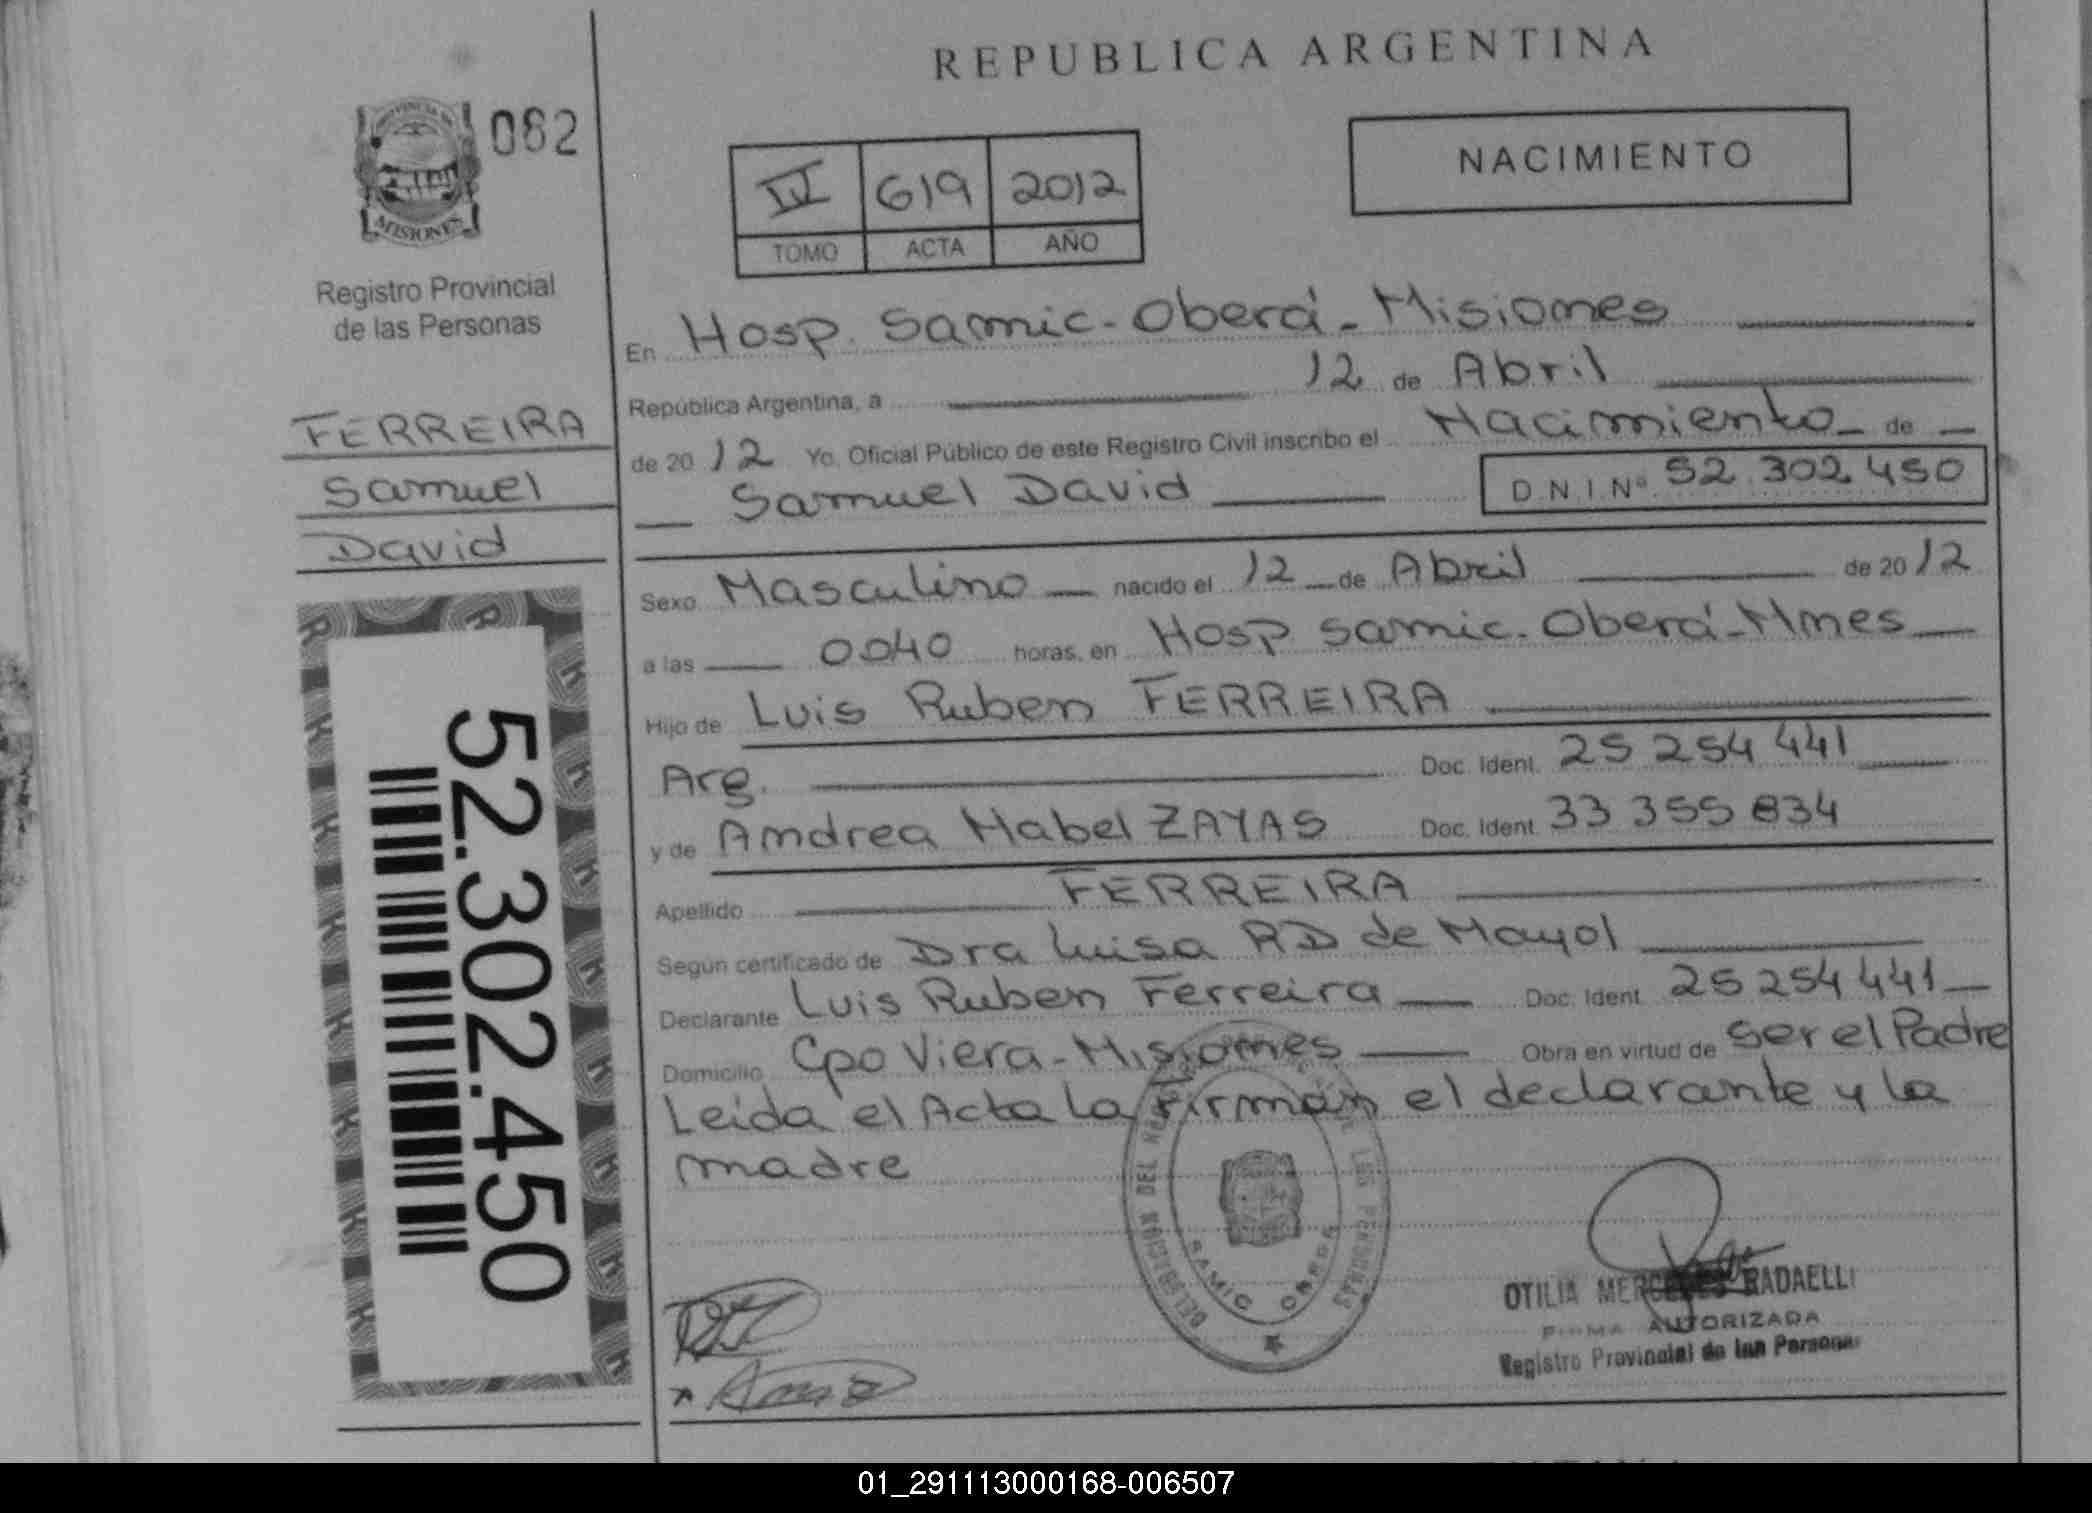 REPUBLICA ARGENTINA
PROVINCIA DE
MISIONES
082
Registro Provincial
de las Personas
FERREIRA
Samuel
David
52.302.450
IV 619 2012
TOMO ACTA AÑO
NACIMIENTO
En Hosp. Samic - Oberá - Misiones
República Argentina, a 12 de Abril
de 2012 Yo, Oficial Público de este Registro Civil inscribo el Nacimiento de
Samuel David D.N.I.Nº 52.302.450
Sexo Masculino nacido el 12 de Abril de 2012
a las 0040 horas, en Hosp Samic. Oberá - Mnes
Hijo de Luis Ruben FERREIRA
Arg. Doc. Ident. 25 254 441
y de Andrea Mabel ZAYAS Doc. Ident. 33 355 834
Apellido FERREIRA
Según certificado de Dra Luisa RD de Mayol
Declarante Luis Ruben Ferreira Doc. Ident. 25 254 441
Domicilio Cpo Viera - Misiones Obra en virtud de Ser el Padre
Leída el Acta La firman el declarante y la
madre
DELEGACION DEL LAS PERSONAS
SAMIC OBERA
OTILIA MERCEDES RADAELLI
FIRMA AUTORIZADA
Registro Provincial de las Personas
01_291113000168-006507